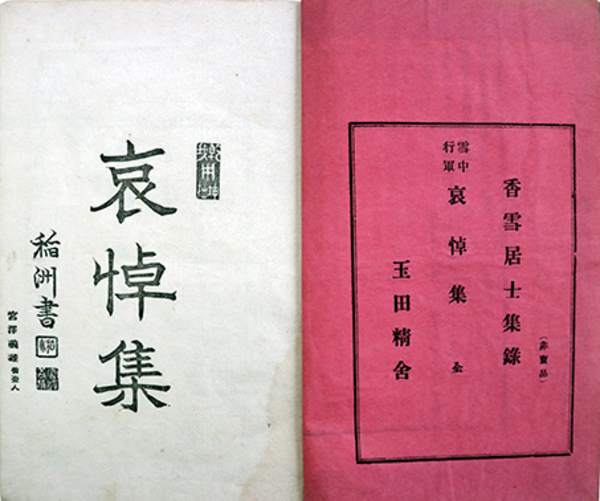 (非賣品)
香雪居士集錄
雪中行軍 哀悼集 全
玉田精舍
哀悼集
稲洲書